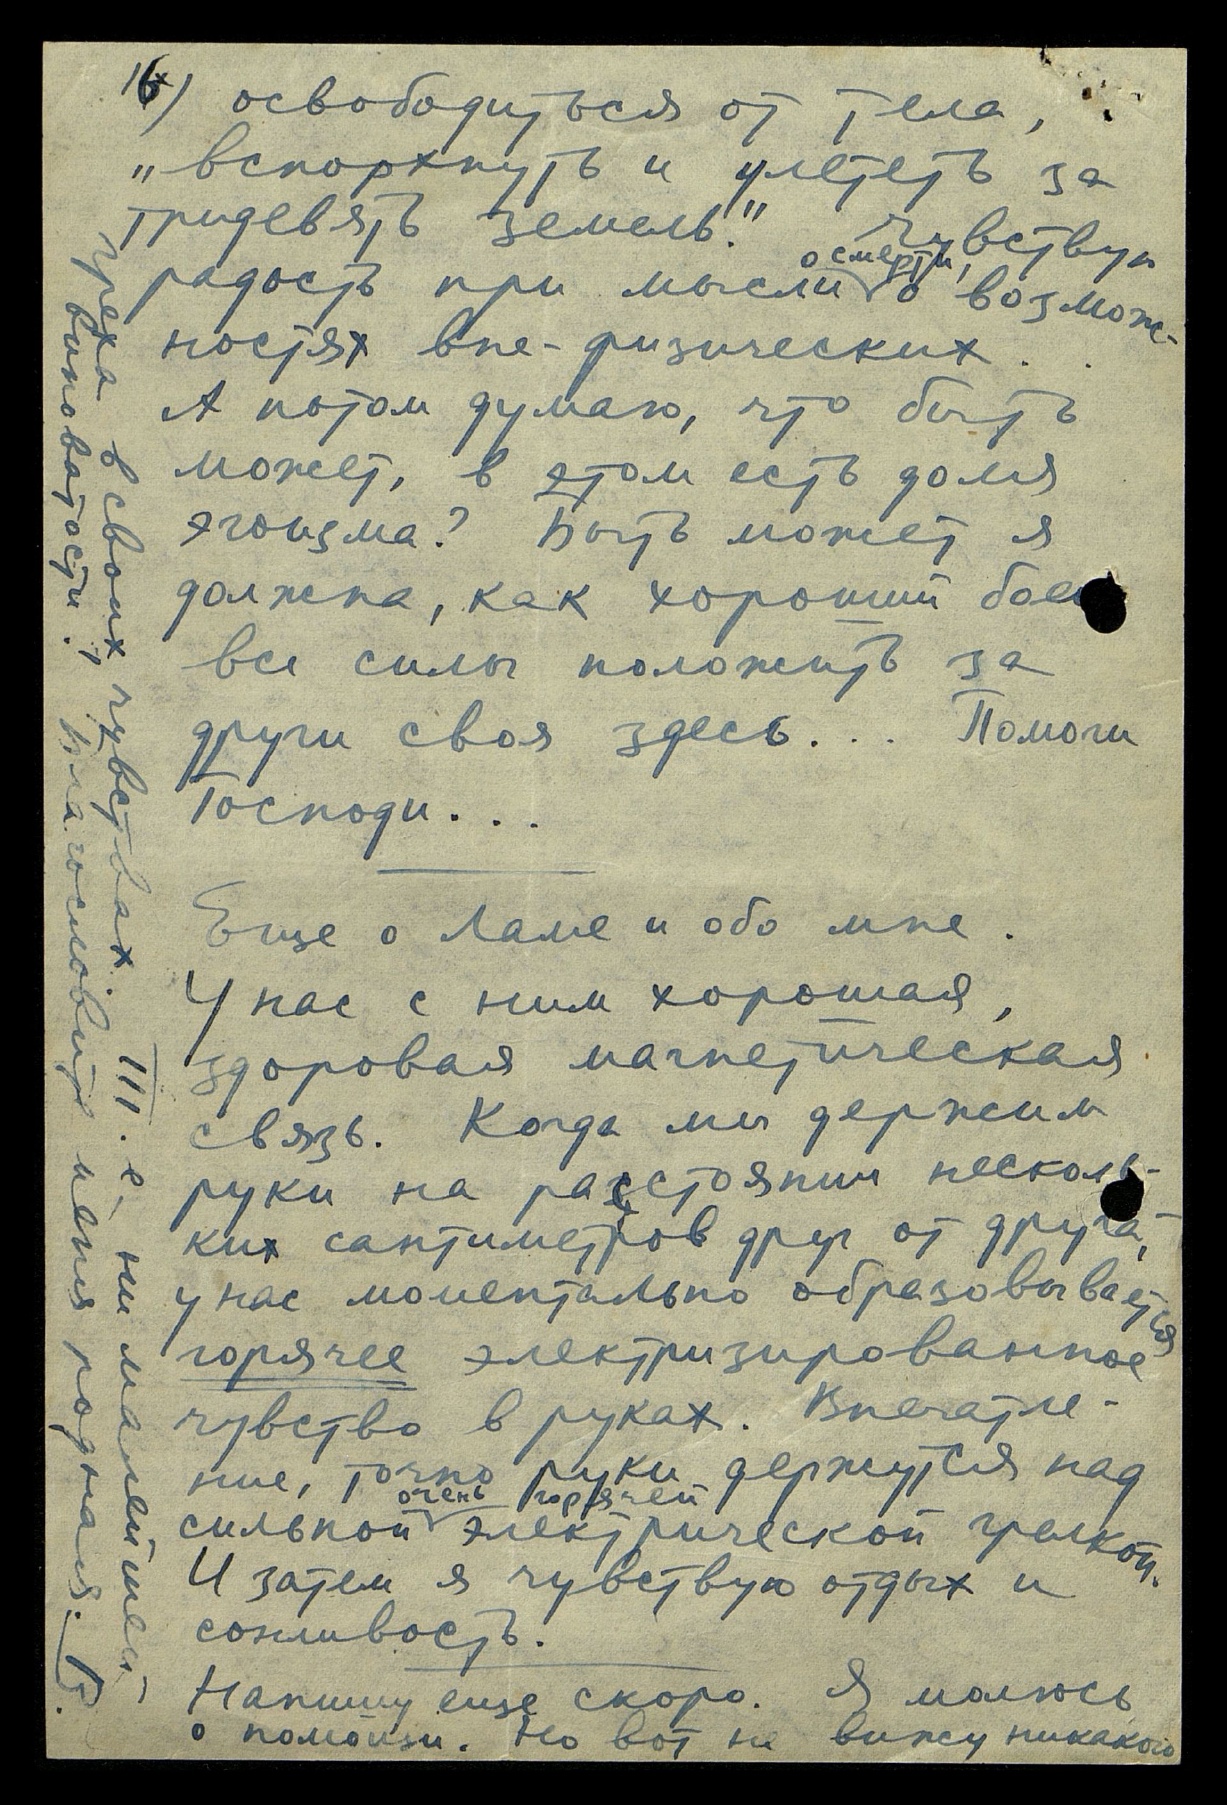 16) освободиться от тела,
„вспорхнуть и улететь за
тридевять земель." Чувствую
радость при мысли о смерти, о возмож-
ностях вне-физических . .
А потом думаю, что быть
может, в этом есть доля
эгоизма? Быть может я
должна, как хороший боец
все силы положить за
други своя здесь... Помоги
Господи...
Еще о Ламе и обо мне.
У нас с ним хорошая,
здоровая магнетическая
связь. Когда мы держим
руки на расстоянии несколь-
ких сантиметров друг от друга,-
у нас моментально образовывается
горячее электризированное
чувство в руках. Впечатле-
ние, точно руки держутся над
сильной очень горячей электрической грелкой.
И затем я чувствую отдых и
сонливость.
Напишу еще скоро. Я молюсь
о помощи. Но вот не вижу никакого
греха в своих чувствах. Т.е. ни малейшей
виноватости. Благословите меня родная. В.